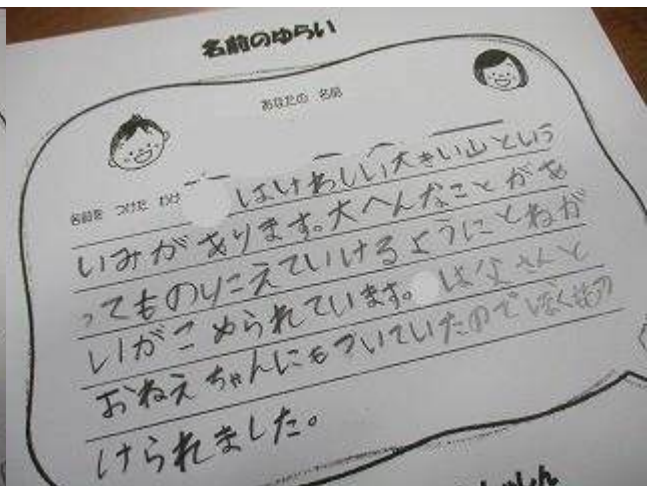 名前のゆらい
あなたの 名前
名前を つけた わけ
はけわしい大きい山という
いみがあります。大へんなことがあ
ってものりこえていけるようにとねが
いがこめられています。 は父さんと
おねえちゃんにもついていたのでぼくもつ
けられました。